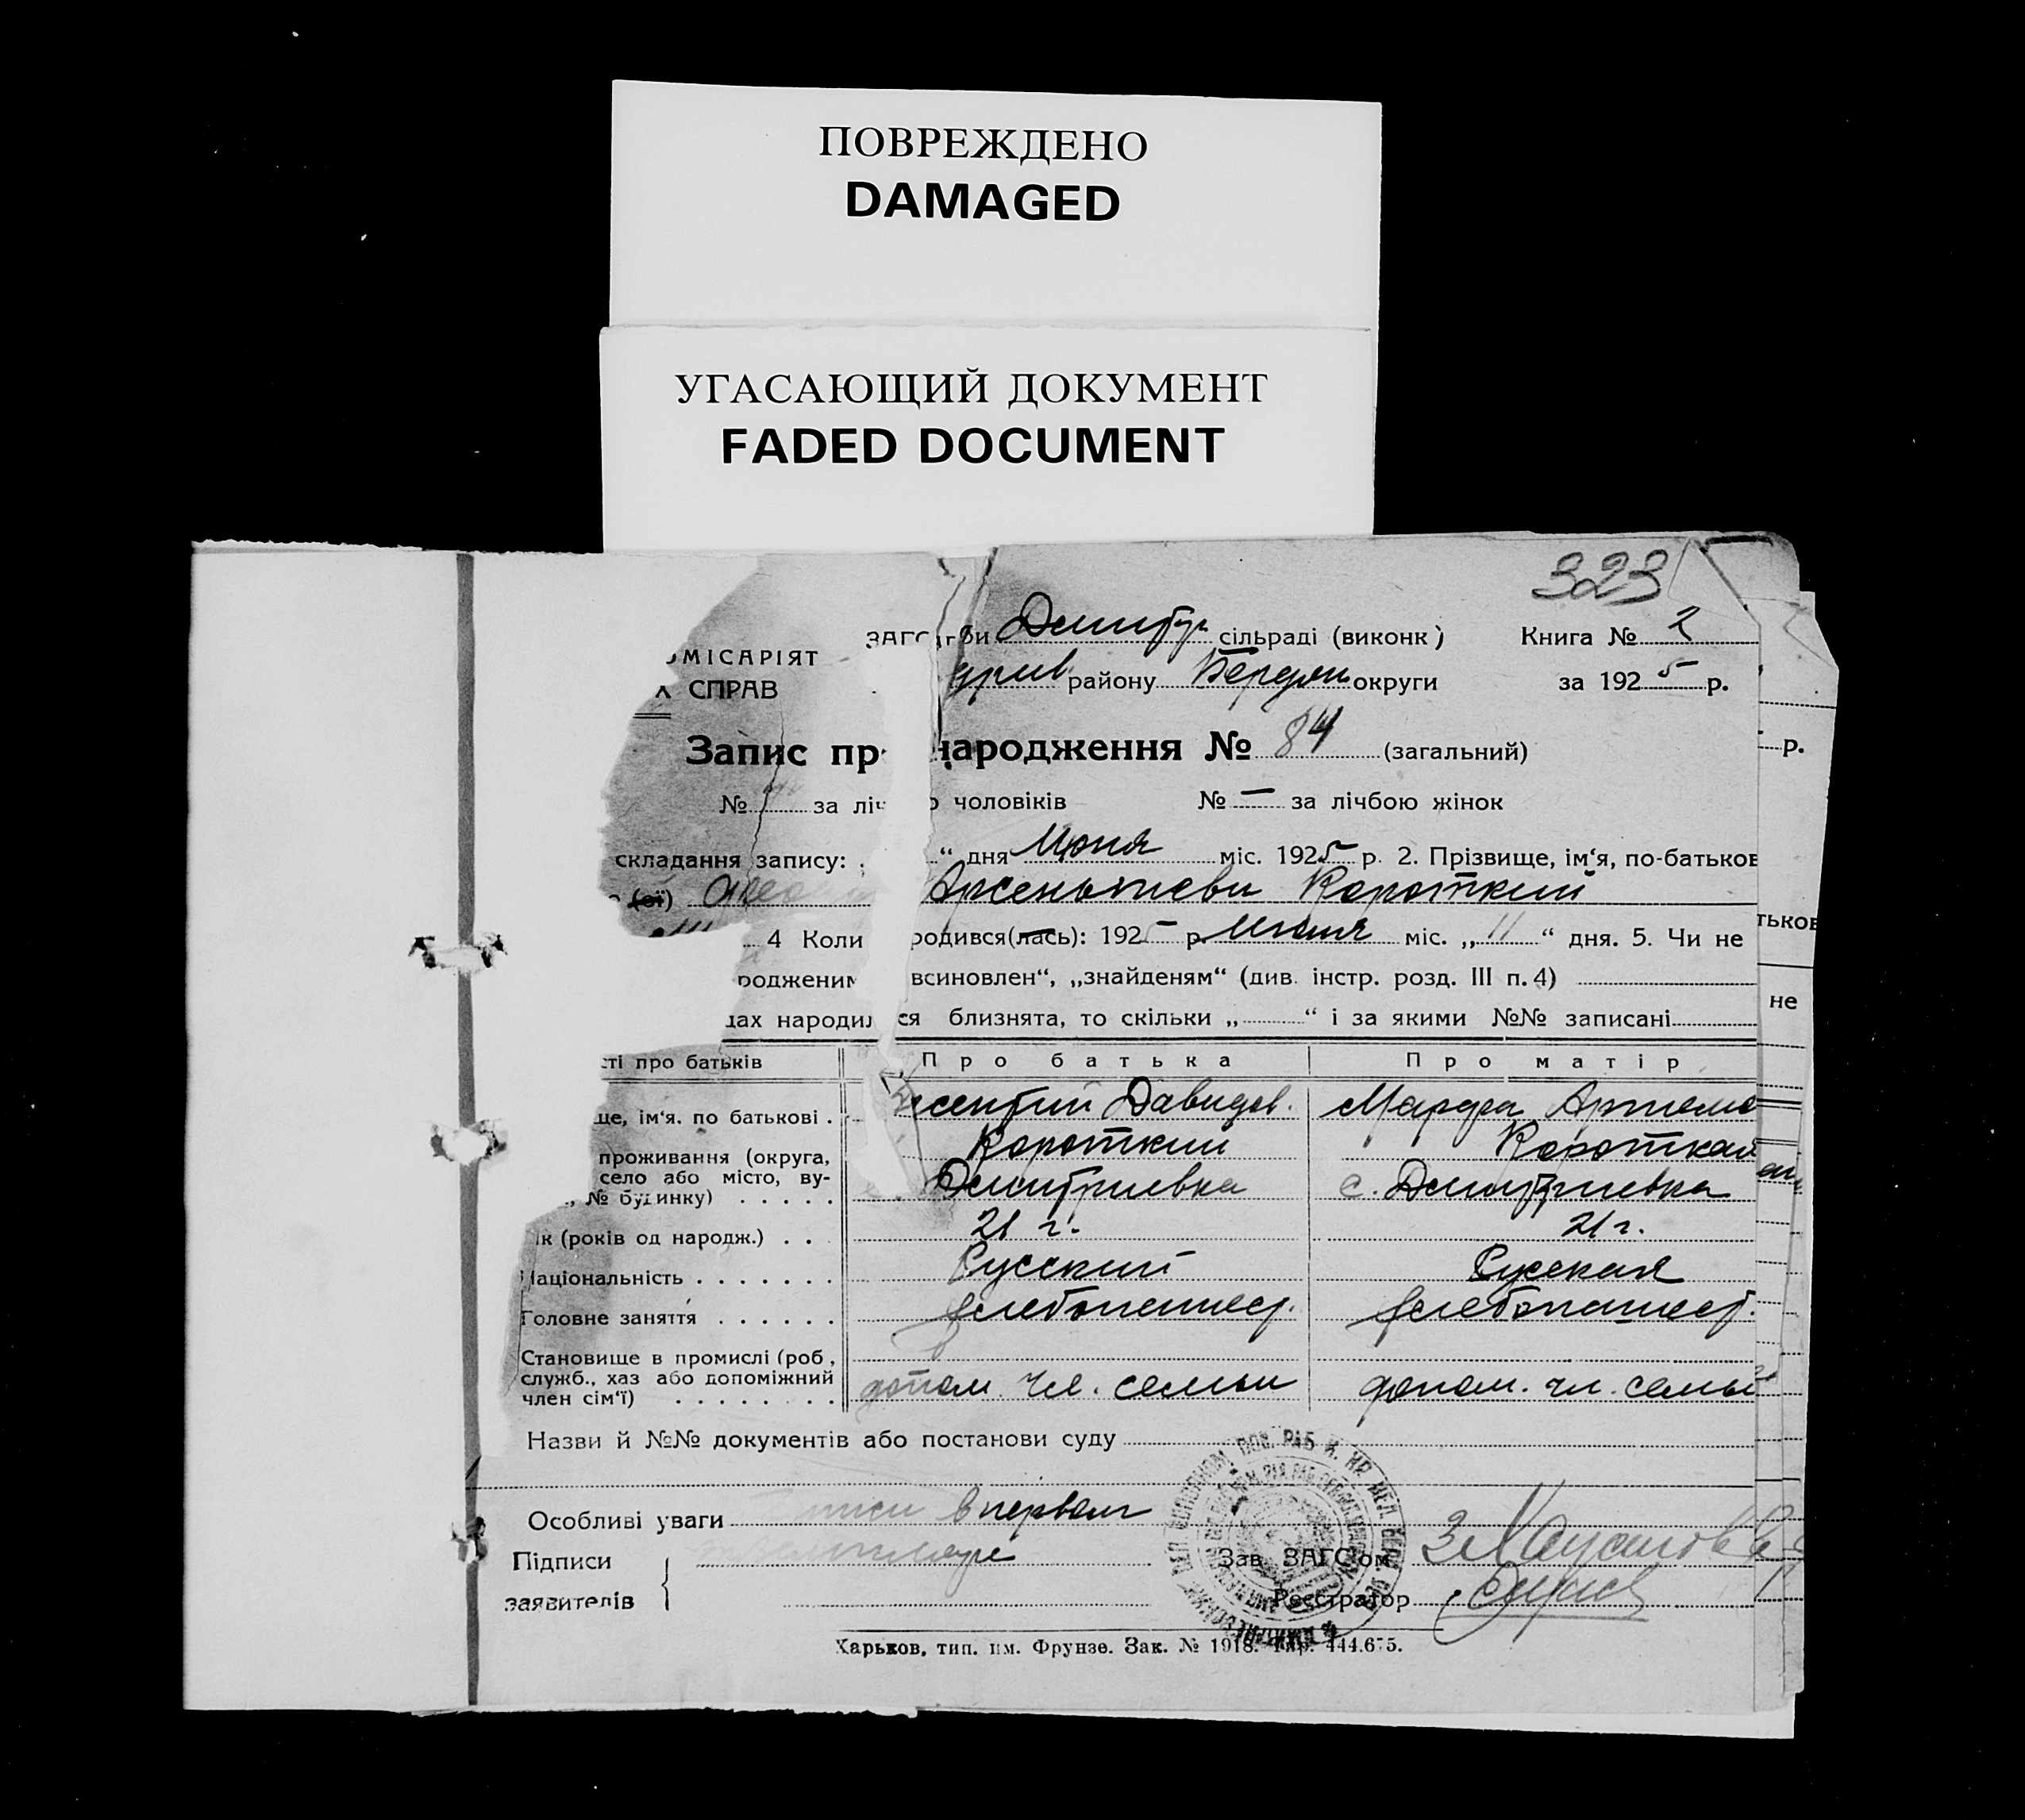 ПОВРЕЖДЕНО
DAMAGED
УГАСАЮЩИЙ ДОКУМЕНТ
FADED DOCUMENT
323
ЗАГС сільраді (виконк) Книга № 2
ОМІСАРІЯТ району Бердян округи за 1925 р.
Х СПРАВ
Запис пр народження № 84 (загальний)
р.
№ за ліч чоловіків № — за лічбою жінок
складання запису: “ дня Июня міс. 1925 р. 2. Прізвище, ім‘я, по-батьков
(ої) Арсентиеви Короткий
тьков
4 Коли родився(лась): 1925 р. Июня міс. „11“ дня. 5. Чи не
родженим всиновлен“, „знайденям“ (див. інстр. розд. III п. 4)
не
дах народил ся близнята, то скільки „ “ і за якими №№ записані
сті про батьків Про батька Про матір
ще, ім‘я. по батькові . Давидов. Марфа Артемо
Короткий Короткая
проживання (округа,
село або місто, ву-
№ будинку) . . . . . Дмитриевка с. Дмитриевка
ік (років од народж.) . . . 21 г. 21 г.
Національність . . . . . . . Русский Русская
Головне заняття . . . . . . хлебопашес. хлебопашес.
Становище в промислі (роб.,
служб., хаз або допоміжний
член сім‘ї) . . . . . . . . допом. чл. семьи допом. чл. семьи
Назви й №№ документів або постанови суду
Особливі уваги в первом
Підписи
заявителів
Зав. ЗАГС‘ом
Реєстратор
Харьков, тип. им. Фрунзе. Зак. № 1918. Тир. 444.675.